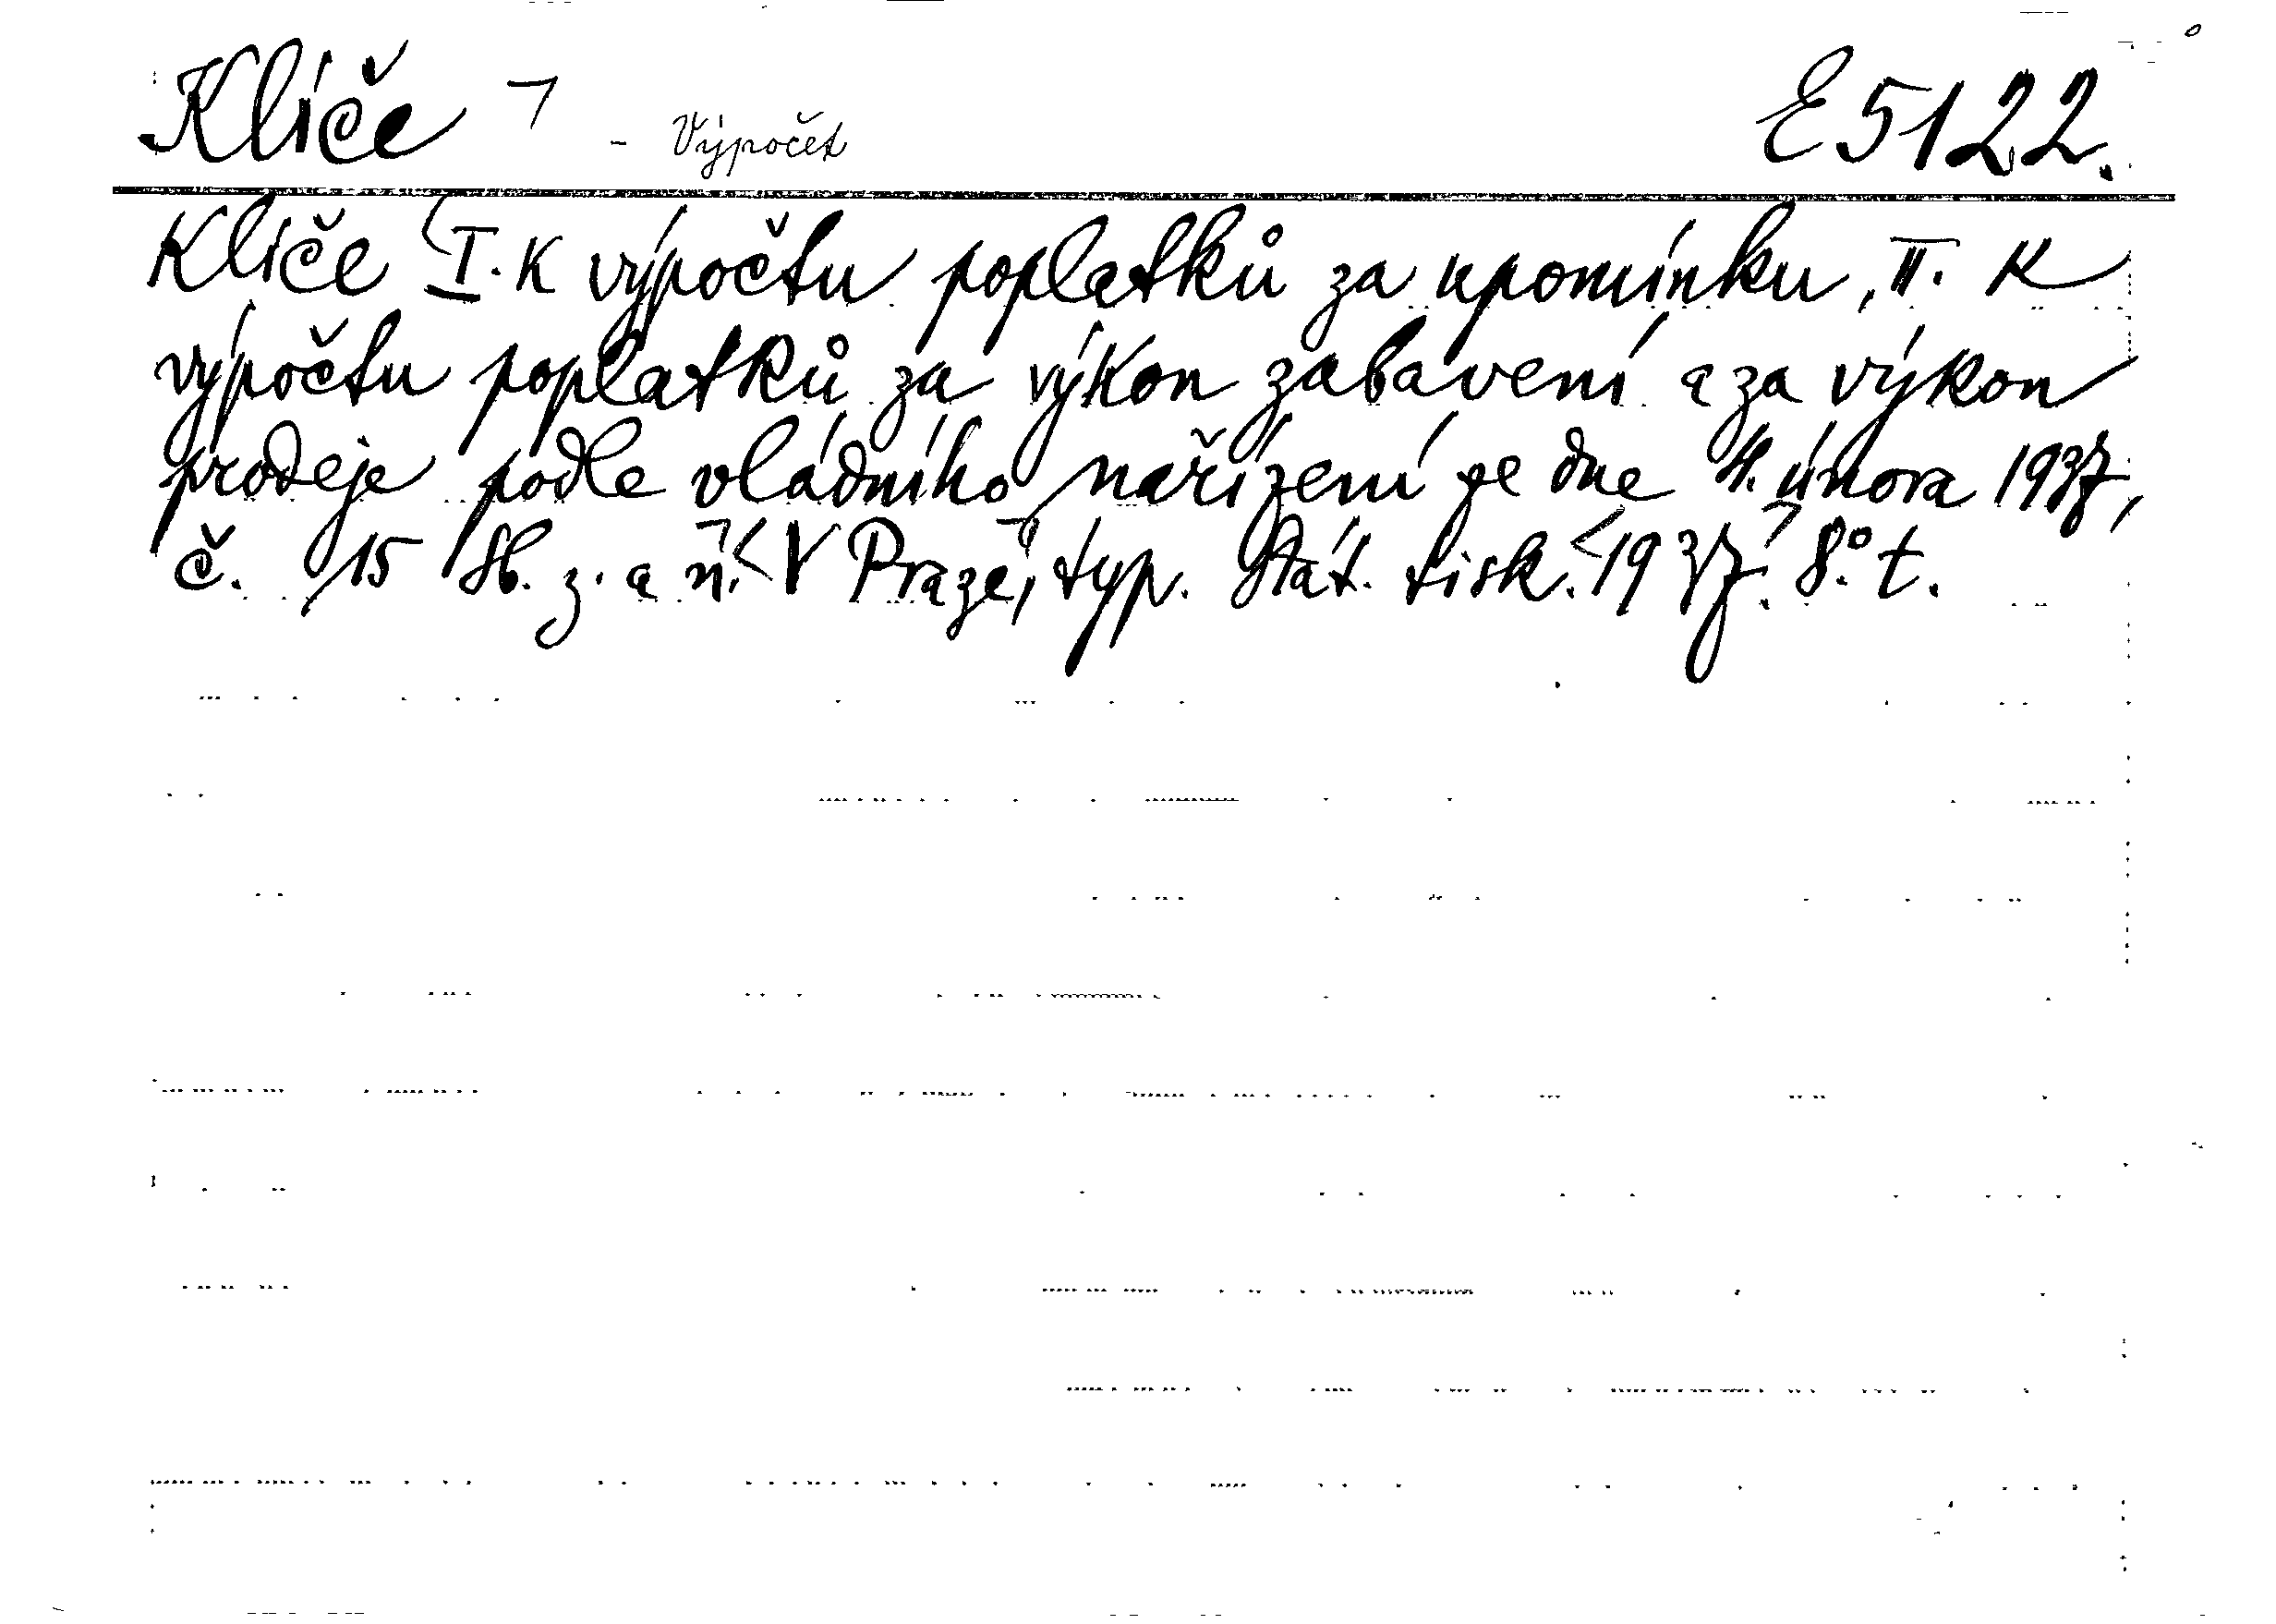 Klíče - Výpočet E 5122.
Klíče I. K výpočtu poplatků za upomínku, II. K
výpočtu poplatků za výkon zabavení a za výkon
prodeje podle vládního nařízení ze dne 4. února 1937,
č. 15 Sb. z. a n. V Praze, typ. Stát. tisk. 1937. 8.° t.